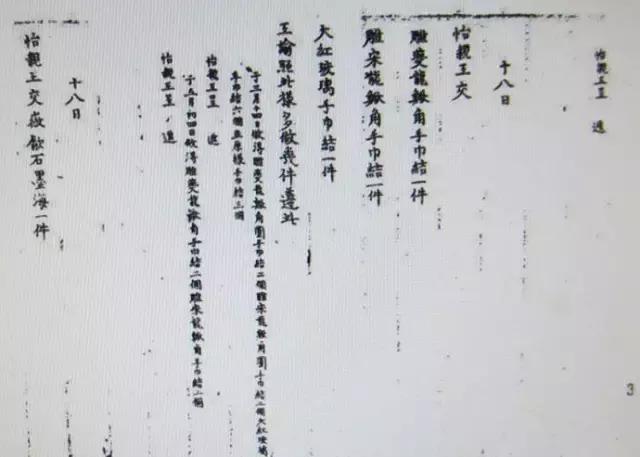 怡親王呈進
十八日
怡親王交
雕雙龍虬角手巾結一件
雕宋龍虬角手巾結一件
大紅玻璃手巾結一件
王諭照此樣多做幾件遵此
于三月十四日做得雕雙龍虬角圈手巾結二個雕宋龍虬角圈手巾結二個大紅玻璃
手巾結六個並原樣手巾結三個
怡親王呈進
于五月初四日做得雕雙龍虬角手巾結二個雕宋龍虬角手巾結二個
怡親王呈進
十八日
怡親王交嵌歙石墨海一件
3